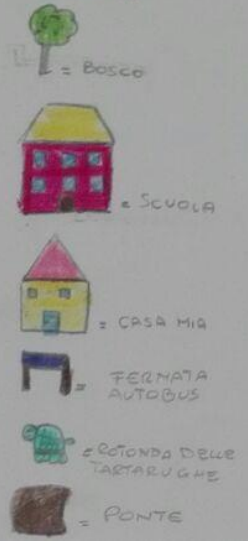 = BOSCO
= SCUOLA
= CASA MIA
= FERMATA
AUTOBUS
= ROTONDA DELLE
TARTARUGHE
= PONTE